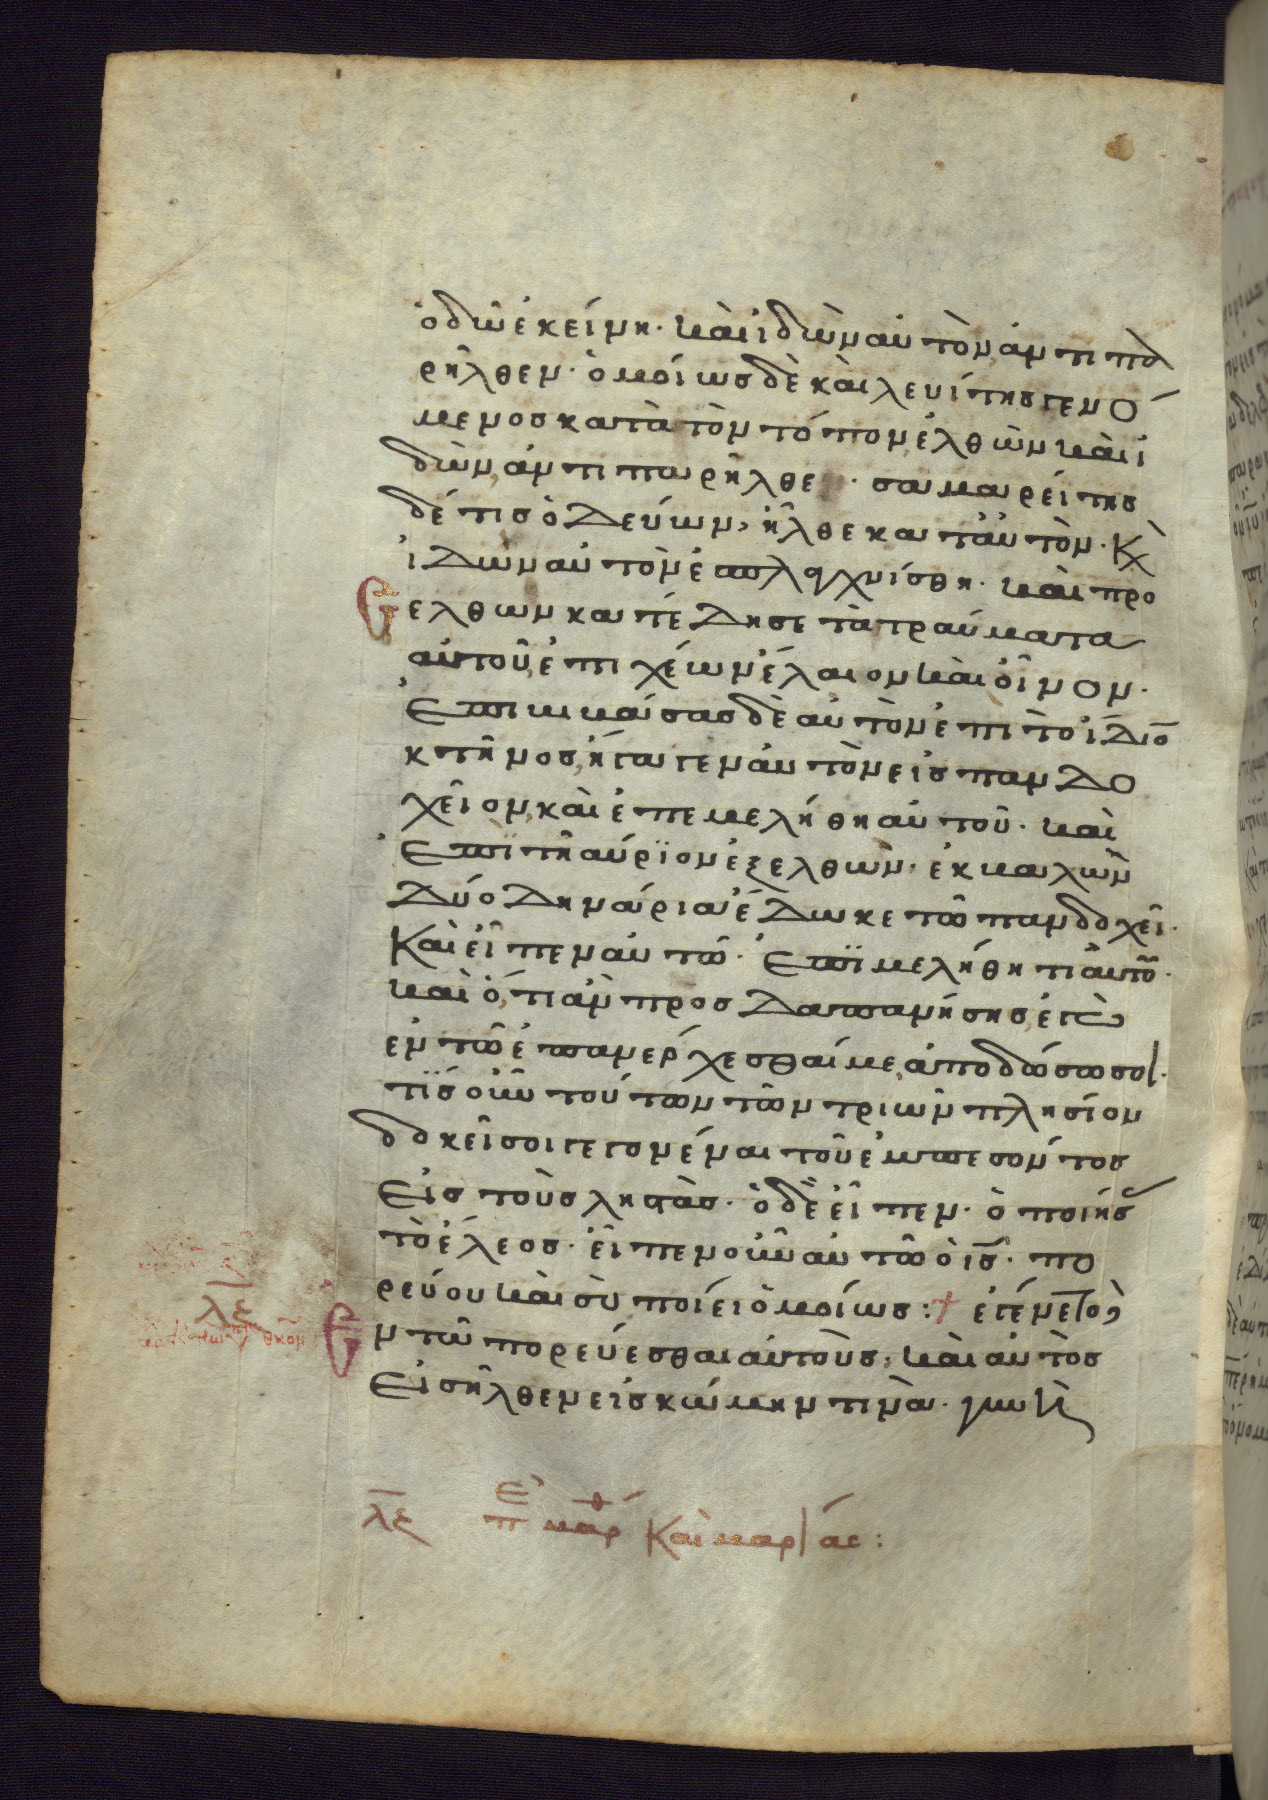 ὁδῶ ἐκείνη· καὶ ἰδὼν αὐτὸν, ἀντιπα
ρῆλθεν· ὁμοίως δὲ καὶ λευίτης γενό
μενος κατὰ τὸν τόπον, ἐλθὼν καὶ ἰ
δὼν, ἀντιπαρῆλθε · σαμαρείτης
δέ τις ὁδεύων, ἦλθε κατ' αὐτὸν· κ(αὶ)
ἰδὼν αὐτὸν ἐσπλαγχνίσθη· καὶ προ
ελθὼν κατέδησε τὰ τραύματα
αὐτοῦ, ἐπιχέων ἔλαιον καὶ οἶνον·
ἐπιβιβάσας δὲ αὐτὸν ἐπὶ τὸ ἴδιο
κτῆνος, ἤγαγεν αὐτὸν εἰς πανδο
χεῖον, καὶ ἐπεμελήθη αὐτοῦ· καὶ
ἐπὶ τὴ αὔριον ἐξελθὼν· ἐκβαλὼν
δύο δηνάρια ἔδωκε τῶ πανδοχεῖ·
Καὶ εἶπεν αὐτῶ· ἐπιμελήθητι αὐτοῦ·
καὶ ὅ,τι ἂν προσδαπανήσης, ἐγὼ
ἐν τῶ ἐπανέρχεσθαί με, ἀποδώσω σοι·
τίς οὖν τούτων τῶν τριῶν πλησίον
δοκεῖ σοι γεγονέναι τοῦ ἐμπεσόντος
εἰς τοὺς ληστάς· ὁ δὲ εἶπεν· ὁ ποιήσ
τὸ ἔλεος· εἶπεν οὖν αὐτῶ ὁ ις· πο
ρεύου καὶ σὺ ποίει ὁμοίως :+ ἐγένετο δὲ
Ἐν τῶ πορεύεσθαι αὐτοὺς, καὶ αὐτὸς
εἰσῆλθεν εἰς κώμην τινὰ· γυνὴ
λξ
λξ περ μάρθ καὶ μαρίας: